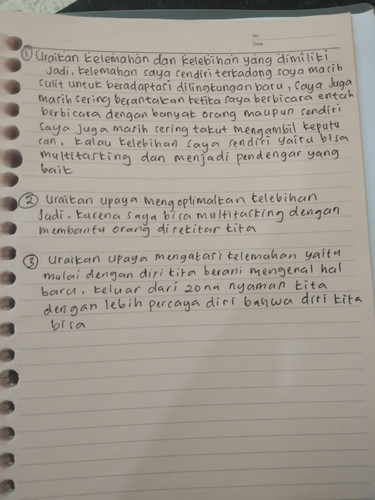 No.
Date
① Uraikan kelemahan dan kelebihan yang dimiliki
Jadi, kelemahan saya sendiri terkadang saya masih
sulit untuk beradaptasi dilingkungan baru, saya juga
masih sering berantakan ketika saya berbicara entah
berbicara dengan banyak orang maupun sendiri
saya juga masih sering takut mengambil keputu
san, kalau kelebihan saya sendiri yaitu bisa
multitasking dan menjadi pendengar yang
baik
② Uraikan upaya mengoptimalkan kelebihan
Jadi. karena saya bisa multitasking dengan
membantu orang disekitar kita
③ Uraikan upaya mengatasi kelemahan yaitu
mulai dengan diri kita berani mengenal hal
baru. keluar dari zona nyaman kita
dengan lebih percaya diri bahwa diri kita
bisa